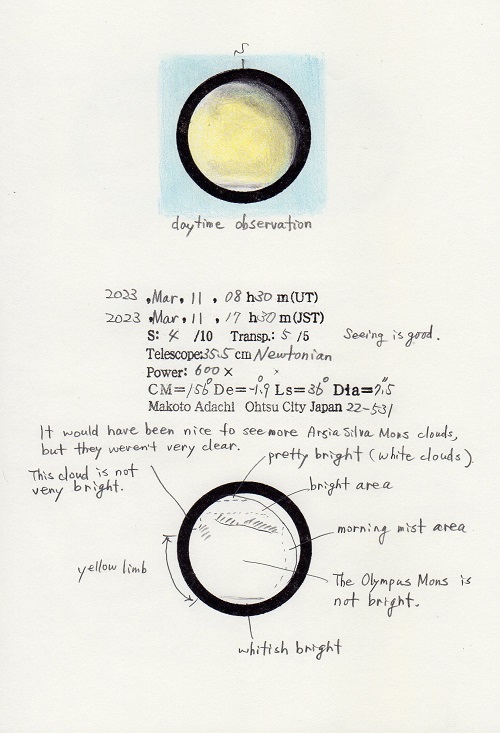 N
daytime observation
2023 ,Mar. 11 , 08 h30 m(UT)
2023 ,Mar. 11 , 17 h30 m(JST)
S: 4 /10 Transp.: 5 /5 Seeing is good.
Telescope:35.5 cm Newtonian
Power: 600 ×
CM=156° De=-1.9° Ls=36° Dia=7.5"
Makoto Adachi Ohtsu City Japan 22-531
It would have been nice to see more Arsia Silva Mons clouds,
but they weren't very clear.
pretty bright (white clouds).
This cloud is not
very bright.
bright area
morning mist area
yellow limb
The Olympus Mons is
not bright.
whitish bright